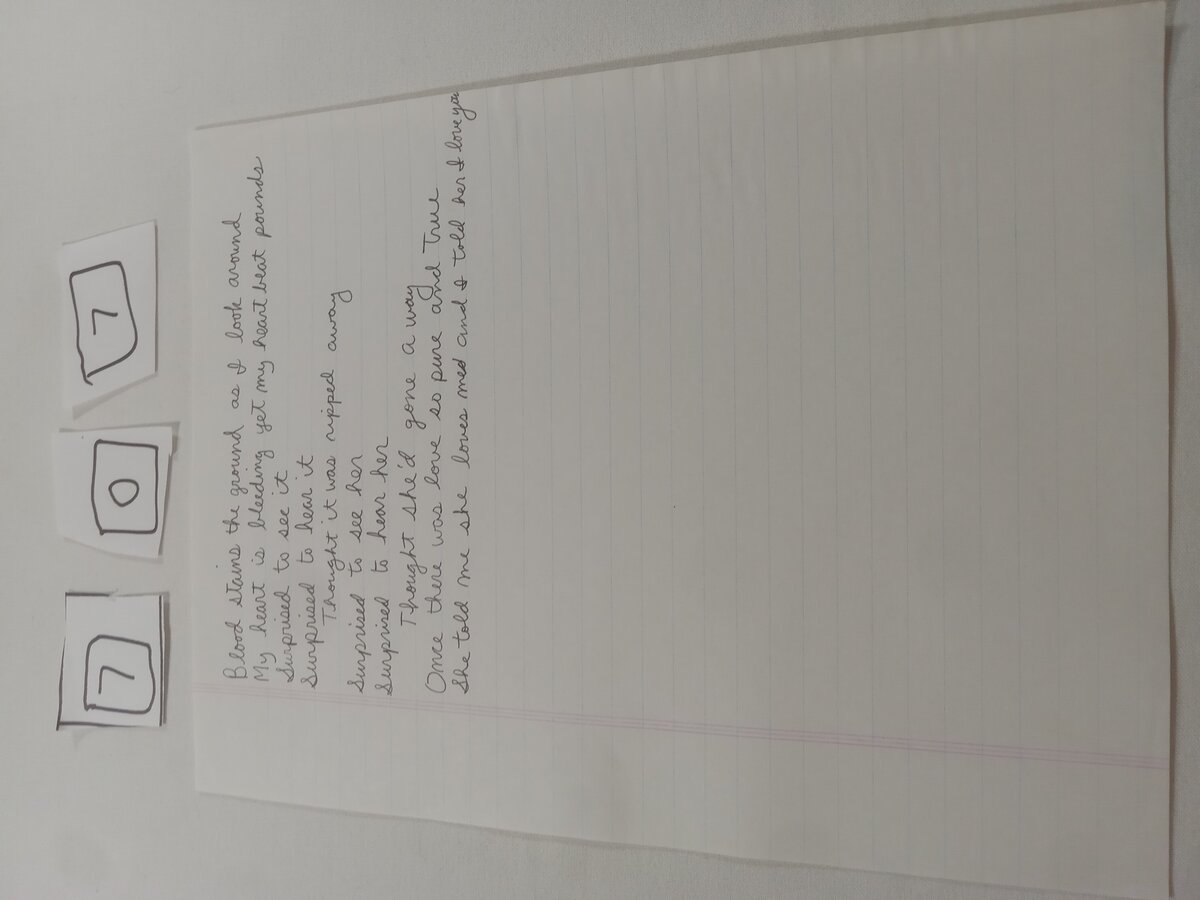 7 0 7
Blood stains the ground as I look around
My heart is bleeding yet my heart beat pounds
Surprised to see it
Surprised to hear it
Thought it was ripped away
Surprised to see her
Surprised to hear her
Thought she'd gone a way
Once there was love so pure and True
She told me she loves med and I told her I love you